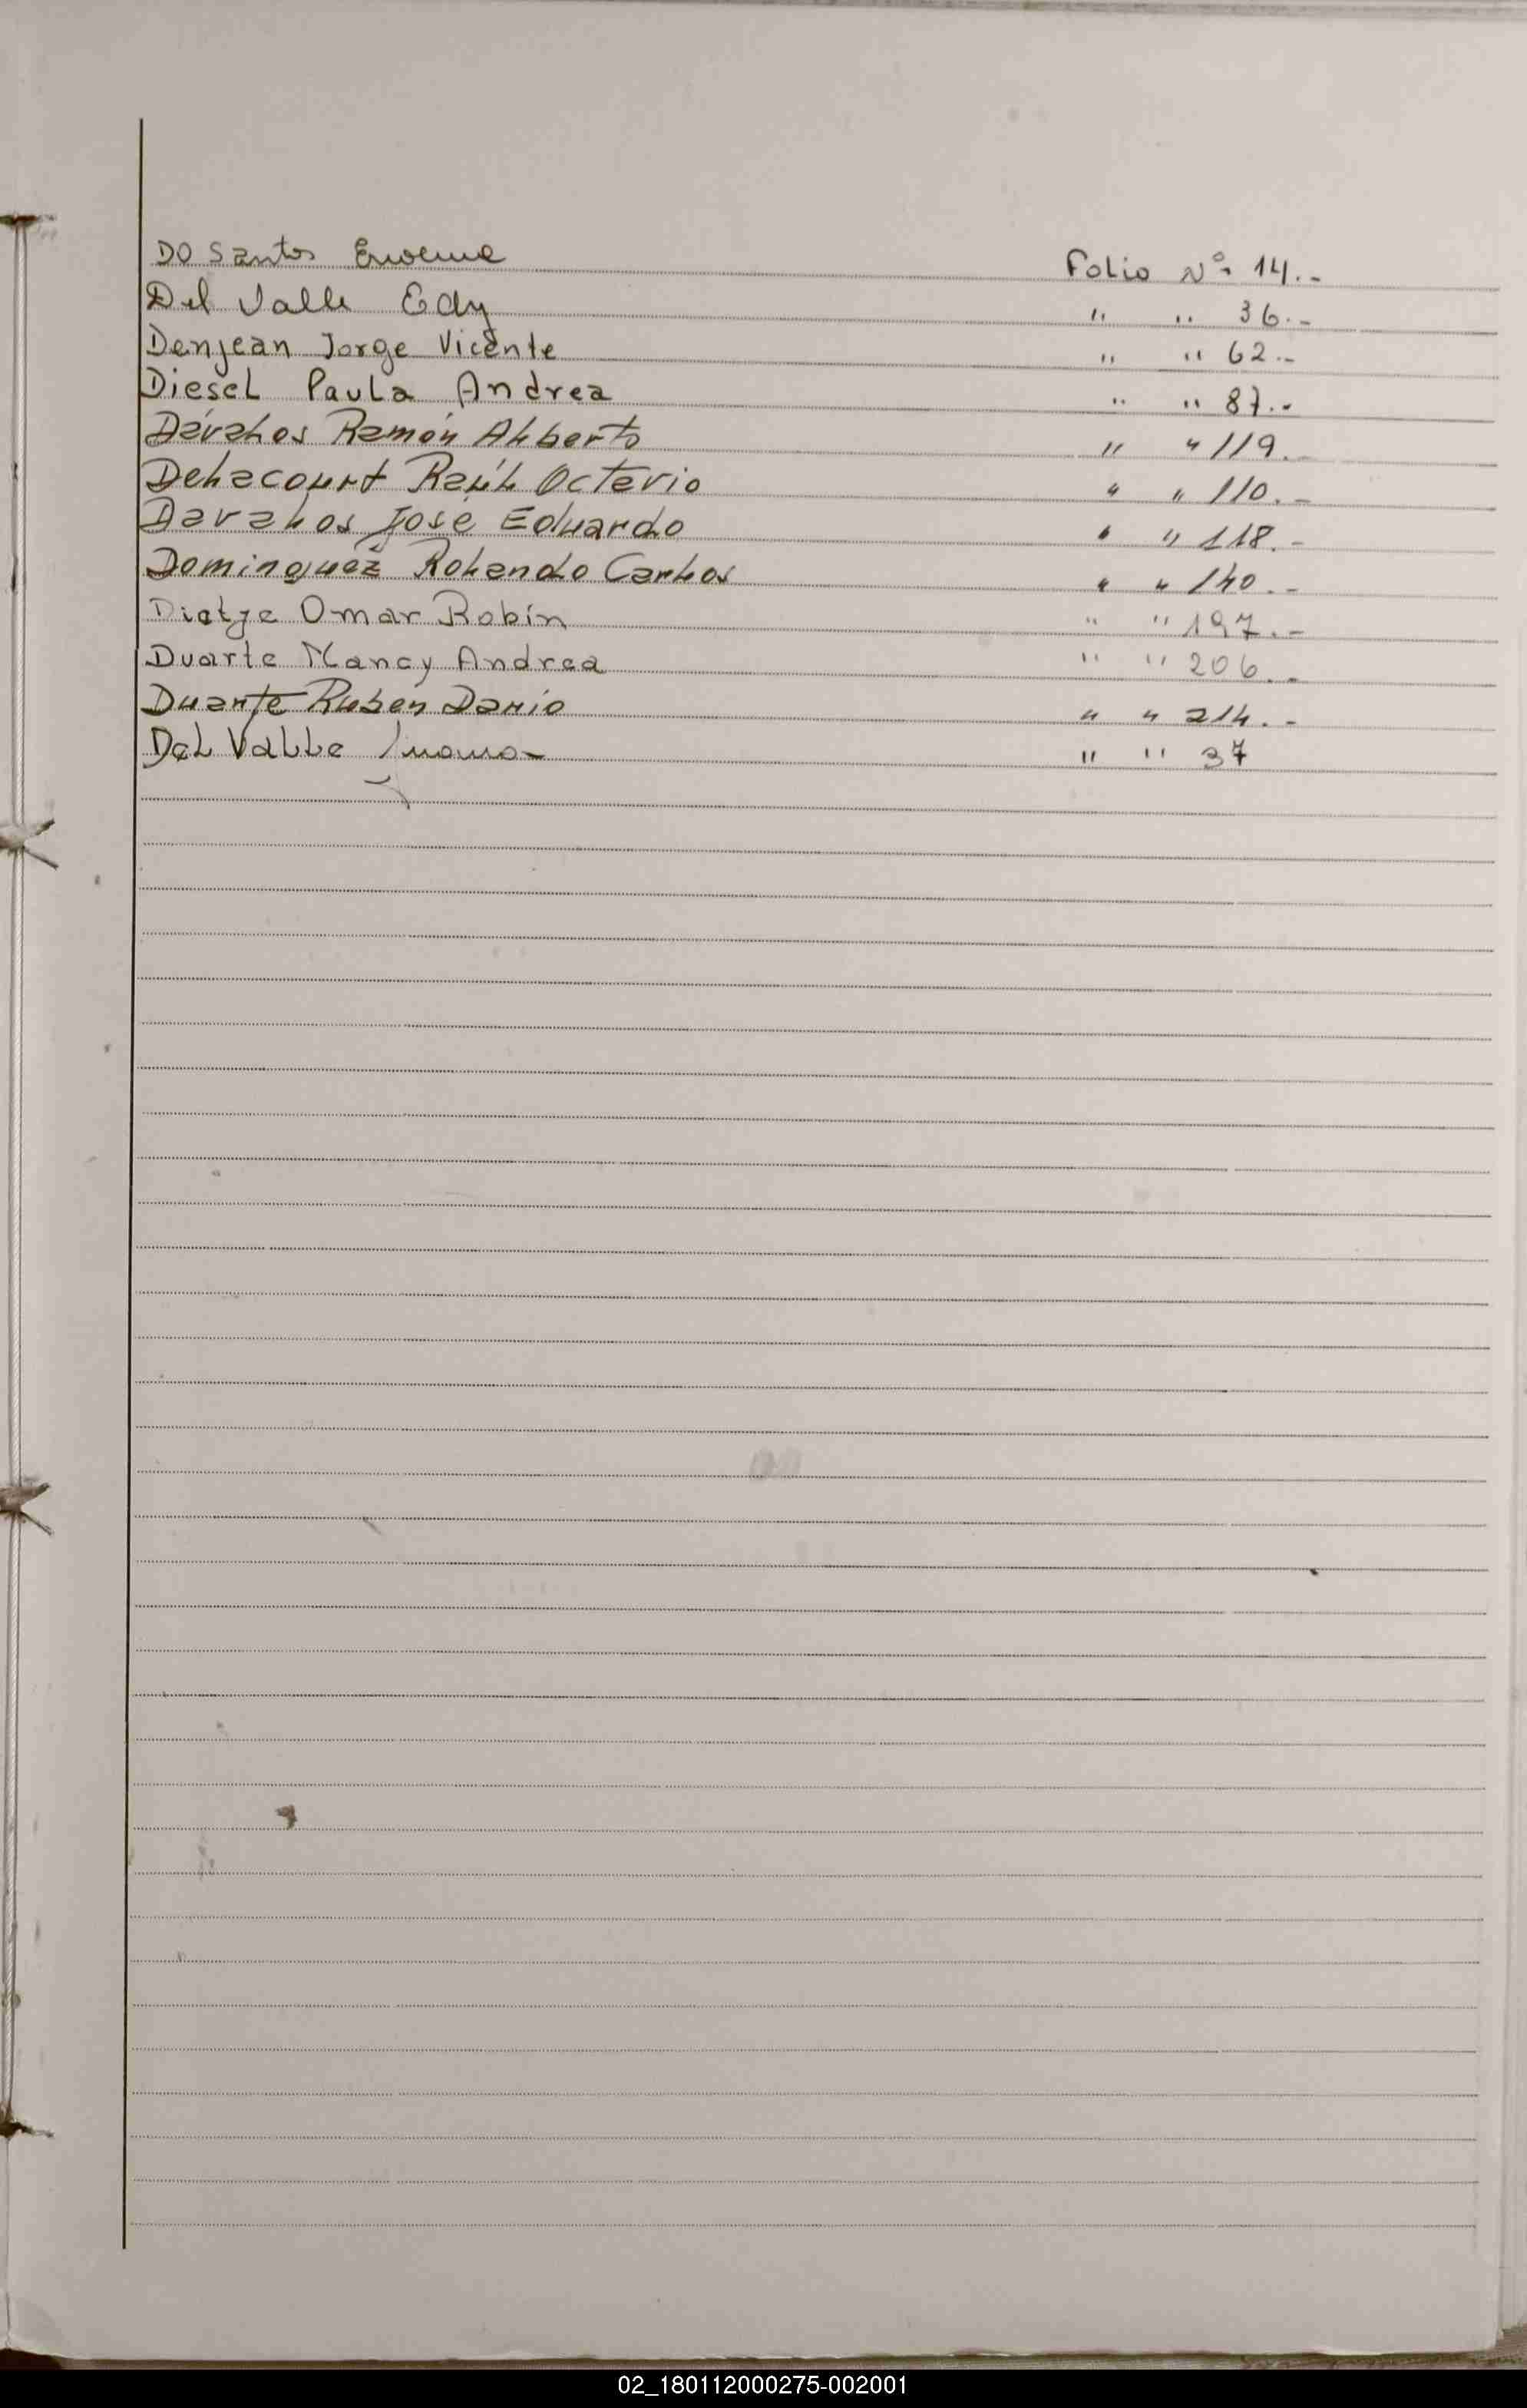 DO Santos
Folio Nº 14.-
Del Valle Edy " " 36.-
Denjean Jorge Vicente " " 62.-
Diesel Paula Andrea " " 87.-
Dávalos Ramón Alberto " " 119.-
Delacourt Raúl Octavio " " 110.-
Davalos José Eduardo " " 118.-
Dominguez Rolando Carlos " " 140.-
Dietze Omar Robín " " 197.-
Duarte Nancy Andrea " " 206.-
Duarte Ruben Dario " " 214.-
Del Valle " " 37
02_180112000275-002001